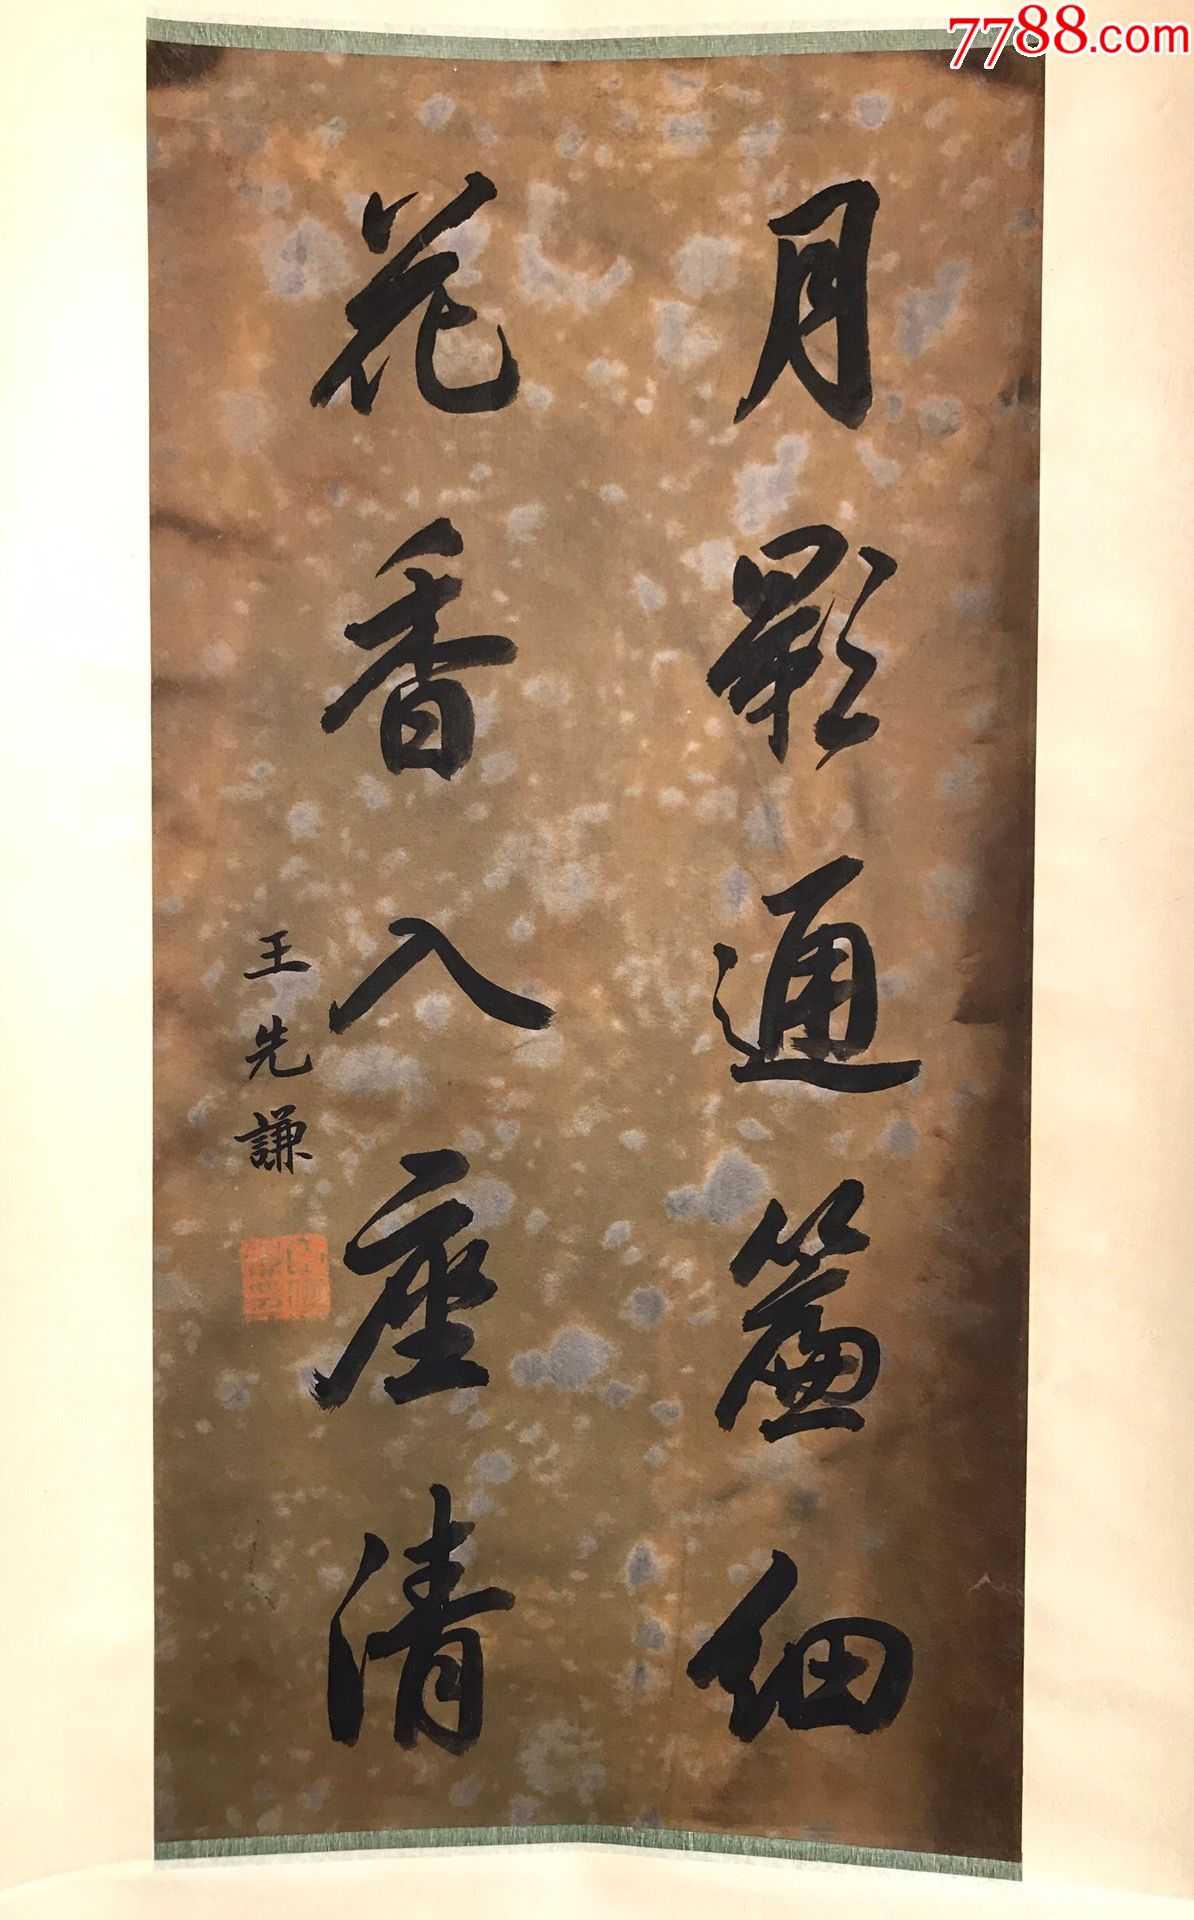 7788.com
月影通簾細
花香入座清
王先謙